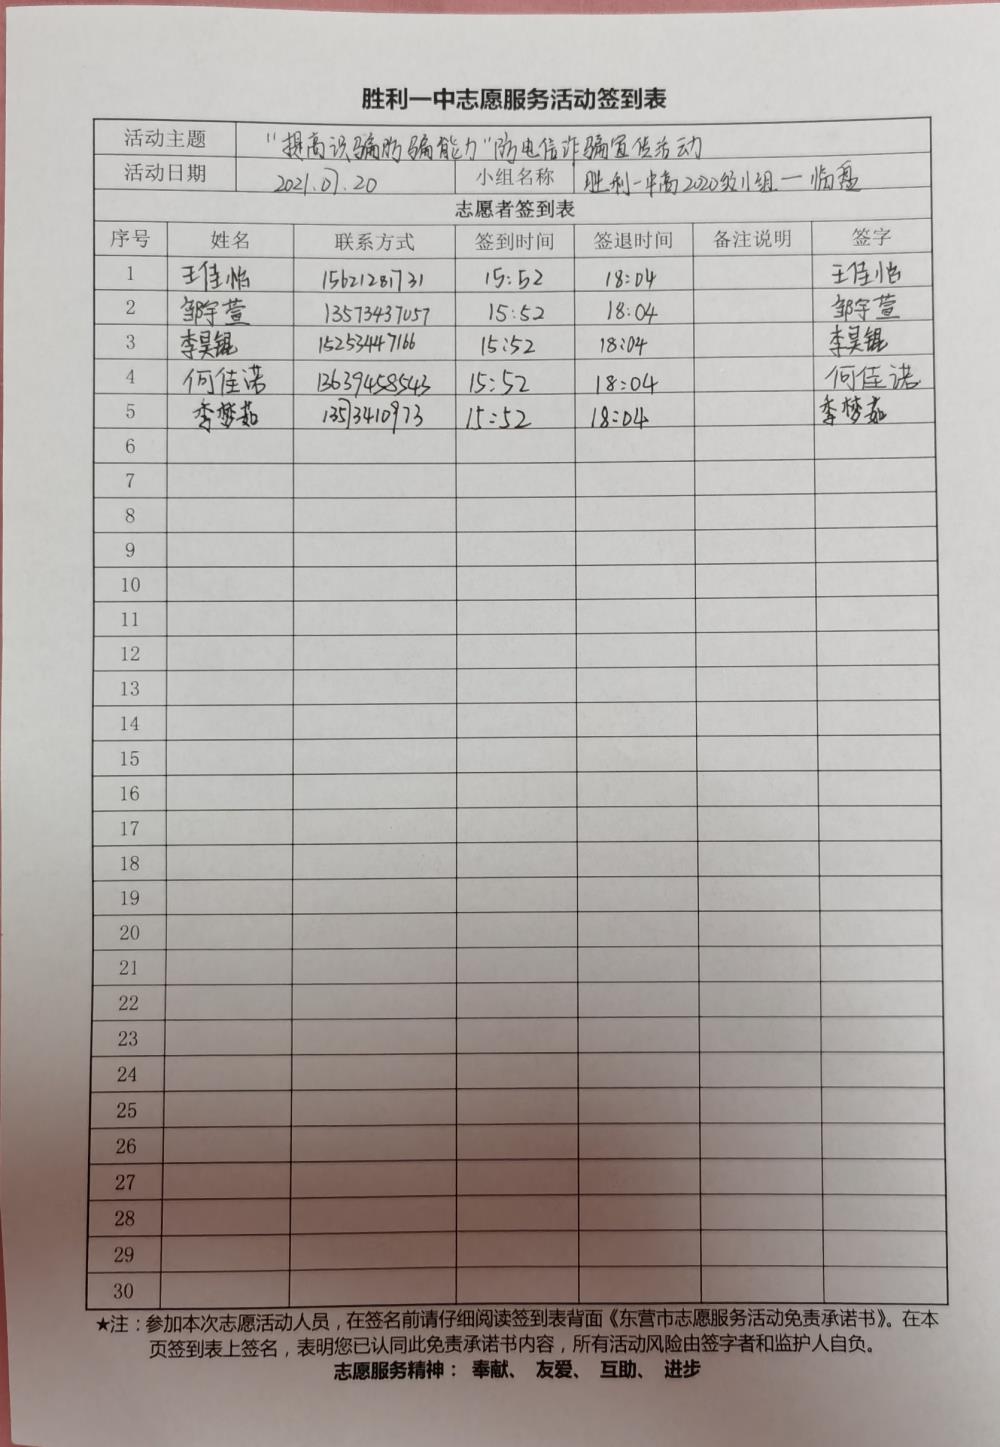 胜利一中志愿服务活动签到表
活动主题 "提高识骗防骗能力"防电信诈骗宣传活动
活动日期 2021.07.20 小组名称 胜利一中高2020级小组一临盘
志愿者签到表
序号 姓名 联系方式 签到时间 签退时间 备注说明 签字
1 王佳怡 15621281731 15:52 18:04 王佳怡
2 邹宇萱 13573437057 15:52 18:04 邹宇萱
3 李昊锟 15253447166 15:52 18:04 李昊锟
4 何佳诺 13639458543 15:52 18:04 何佳诺
5 李梦茹 13573410973 15:52 18:04 李梦茹
6
7
8
9
10
11
12
13
14
15
16
17
18
19
20
21
22
23
24
25
26
27
28
29
30
★注：参加本次志愿活动人员，在签名前请仔细阅读签到表背面《东营市志愿服务活动免责承诺书》。在本
页签到表上签名，表明您已认同此免责承诺书内容，所有活动风险由签字者和监护人自负。
志愿服务精神： 奉献、 友爱、 互助、 进步